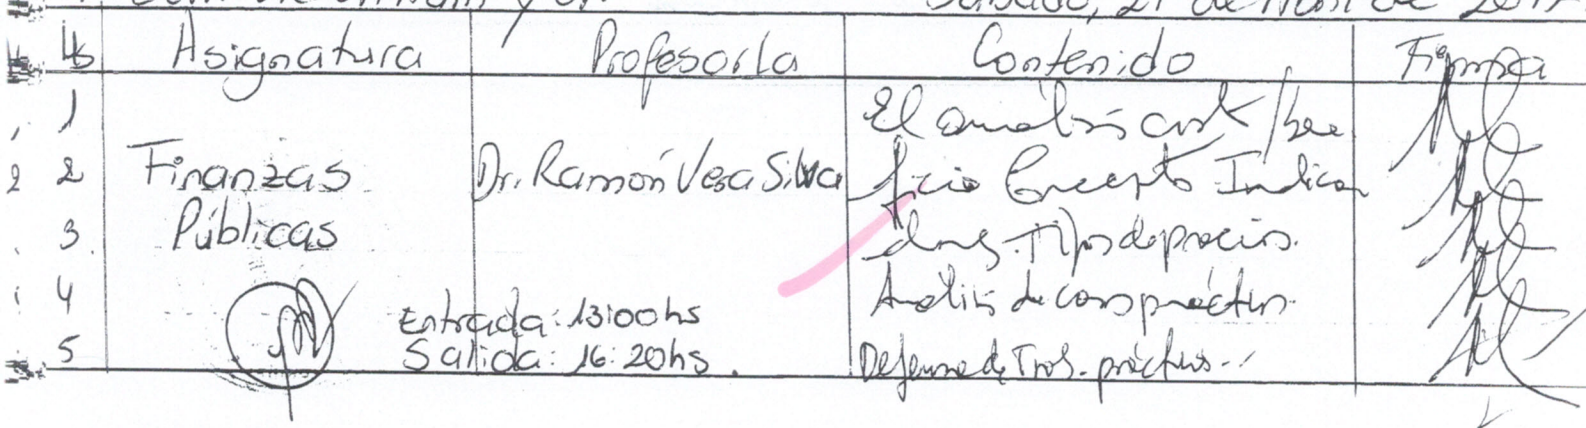 Hs Asignatura Profesor/a Contenido Firma
1 El análisis cost/bene
2 Finanzas Dr. Ramón Vera Silva ficio Concepto Indica
3 Públicas dores. Tipos de precios.
4 Análisis de casos prácticos.
Entrada: 13:00hs
5 Salida: 16:20hs. Defensa de Trab. prácticos.